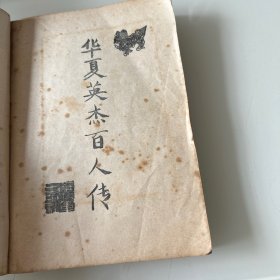 华夏英杰百人传